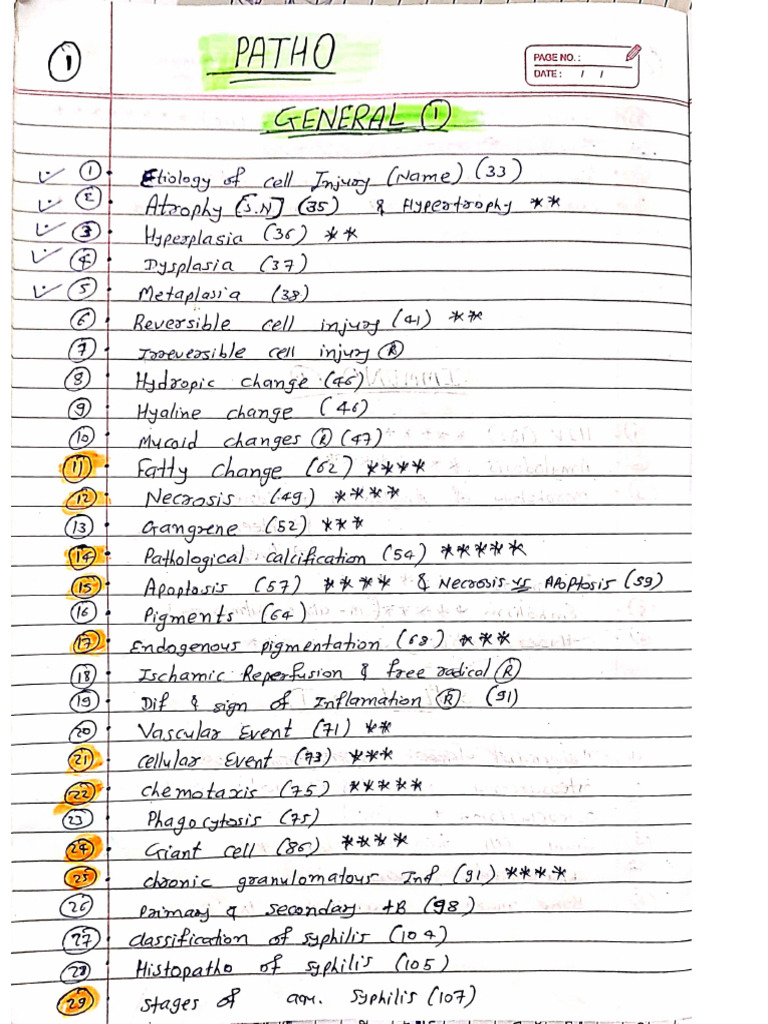 1
PATHO
PAGE NO. :
DATE : / /
GENERAL 1
1 Etiology of cell Injury (Name) (33)
2 Atrophy [S.N] (35) & Hypertrophy **
3 Hyperplasia (36) **
4 Dysplasia (37)
5 Metaplasia (38)
6 Reversible cell injury (41) **
7 Irreversible cell injury R
8 Hydropic change (46)
9 Hyaline change (46)
10 Mucoid changes R (47)
11 Fatty change (62) ****
12 Necrosis (49) ****
13 Gangrene (52) ***
14 Pathological calcification (54) *****
15 Apoptosis (57) **** & Necrosis vs Apoptosis (59)
16 Pigments (64)
17 Endogenous pigmentation (68) ***
18 Ischamic Reperfusion & free radical R
19 Dif & sign of Inflamation R (91)
20 Vascular Event (71) **
21 Cellular Event (73) ***
22 Chemotaxis (75) *****
23 Phagocytosis (75)
24 Giant cell (86) ****
25 chronic granulomatous Inf (91) ****
26 Primary & secondary TB (98)
27 classification of syphilis (104)
28 Histopatho of syphilis (105)
29 stages of syphilis (107)